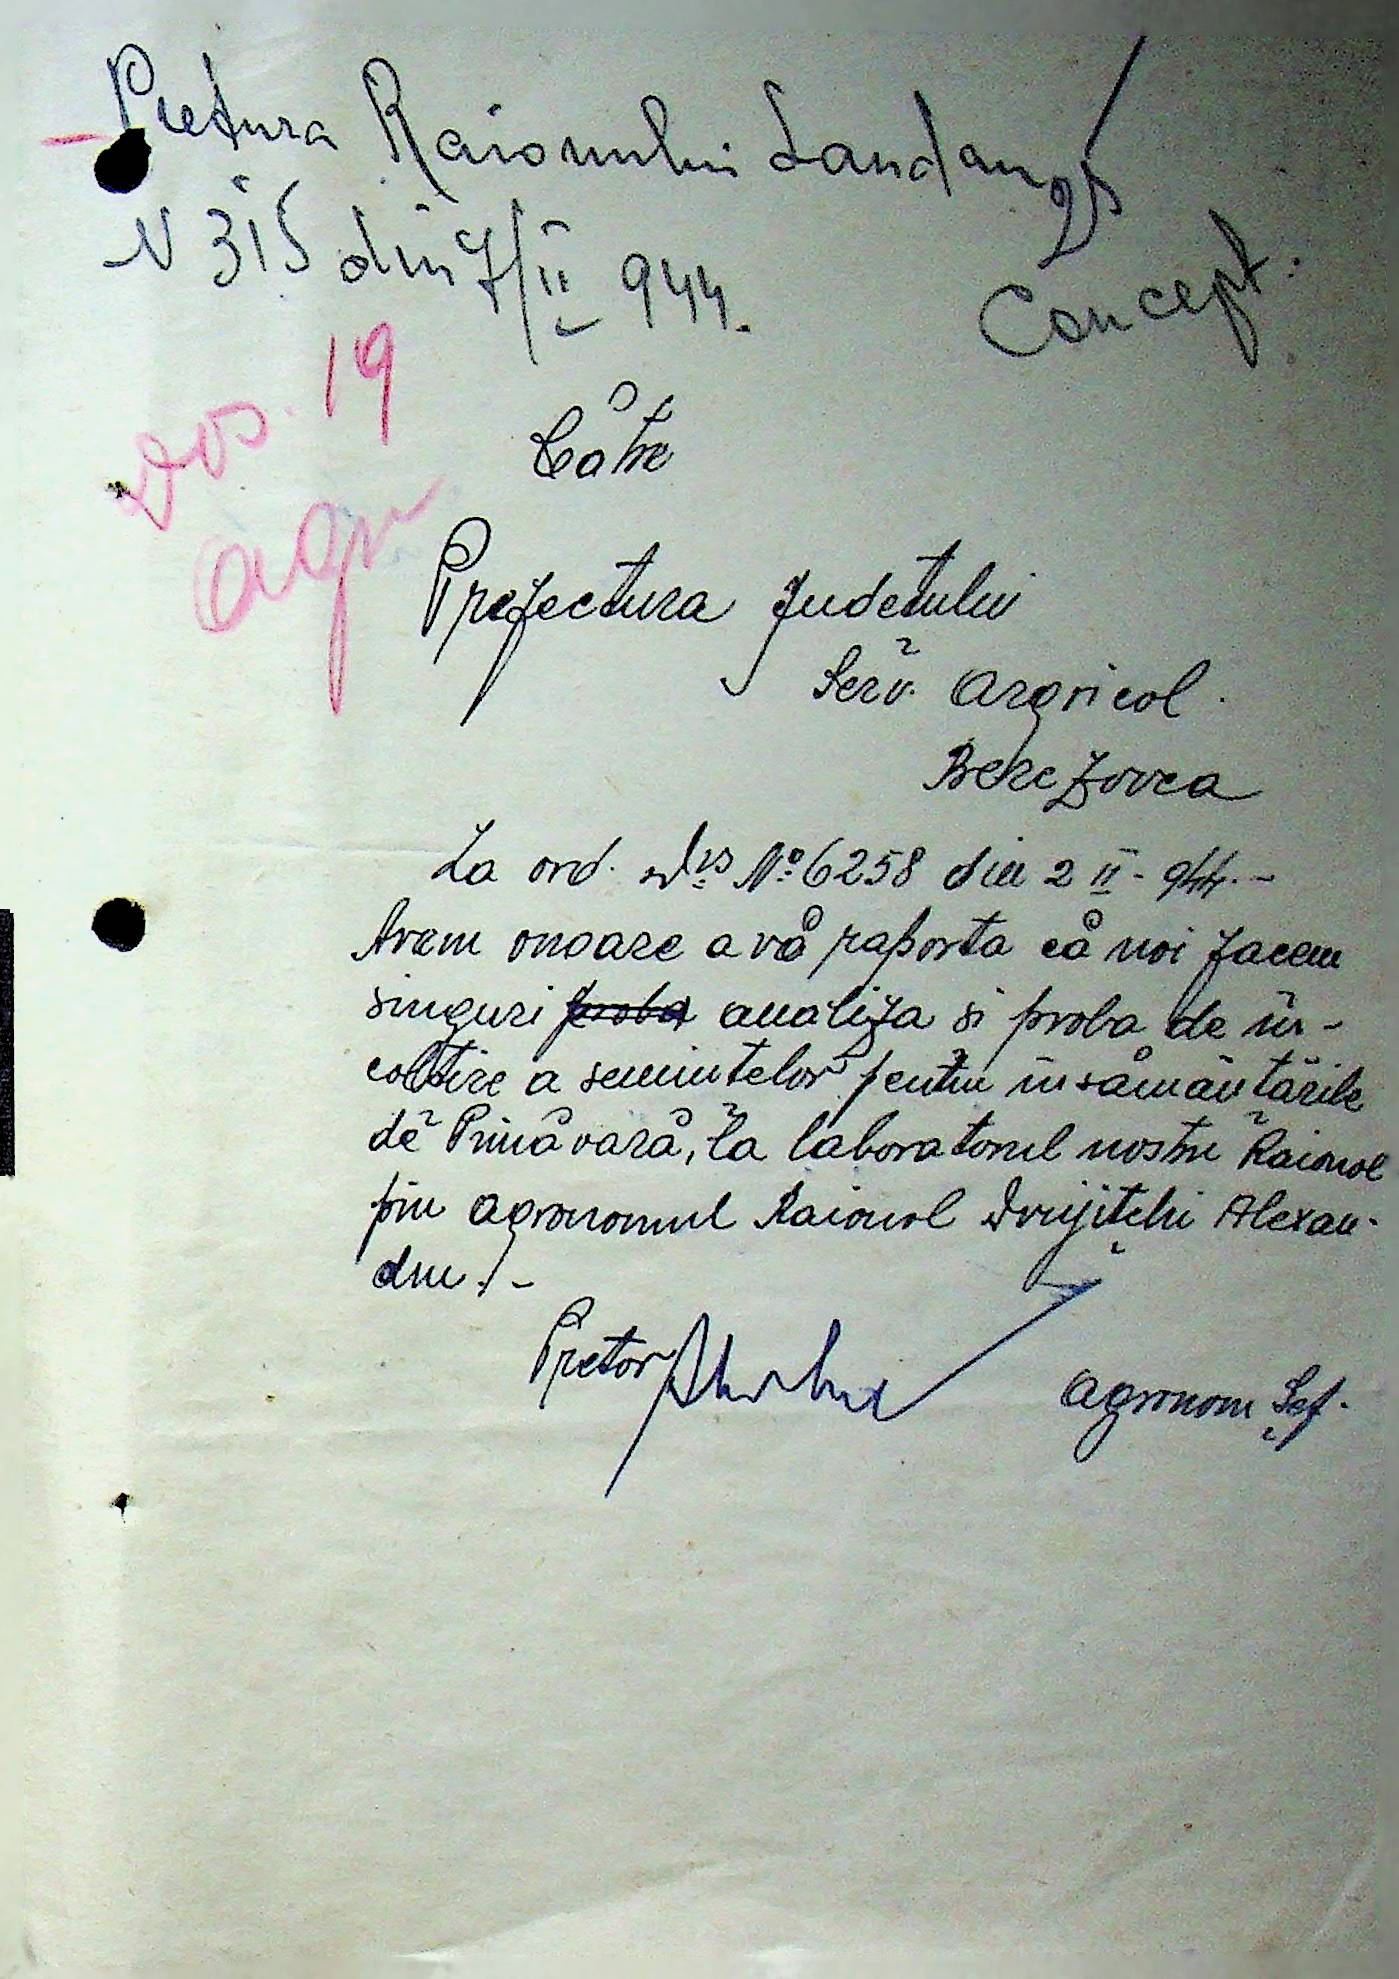 Pretura Raionului Landau
25
N 315 din 7/II 944.
Concept.
Dos. 19
agr
Către
Prefectura Judetului
Serv. Argricol.
Berezovca
La ord. Dvs No 6258 din 2 II - 944. -
Avem onoare a vă raporta că noi facem
singuri proba analiza si proba de în-
coltire a semintelor pentru însămăntările
de Primăvară, la laboratorul nostru Raional
prin agronomul Raional Drujitchi Alexan-
dru. / -
Pretor
Agronom Șef.